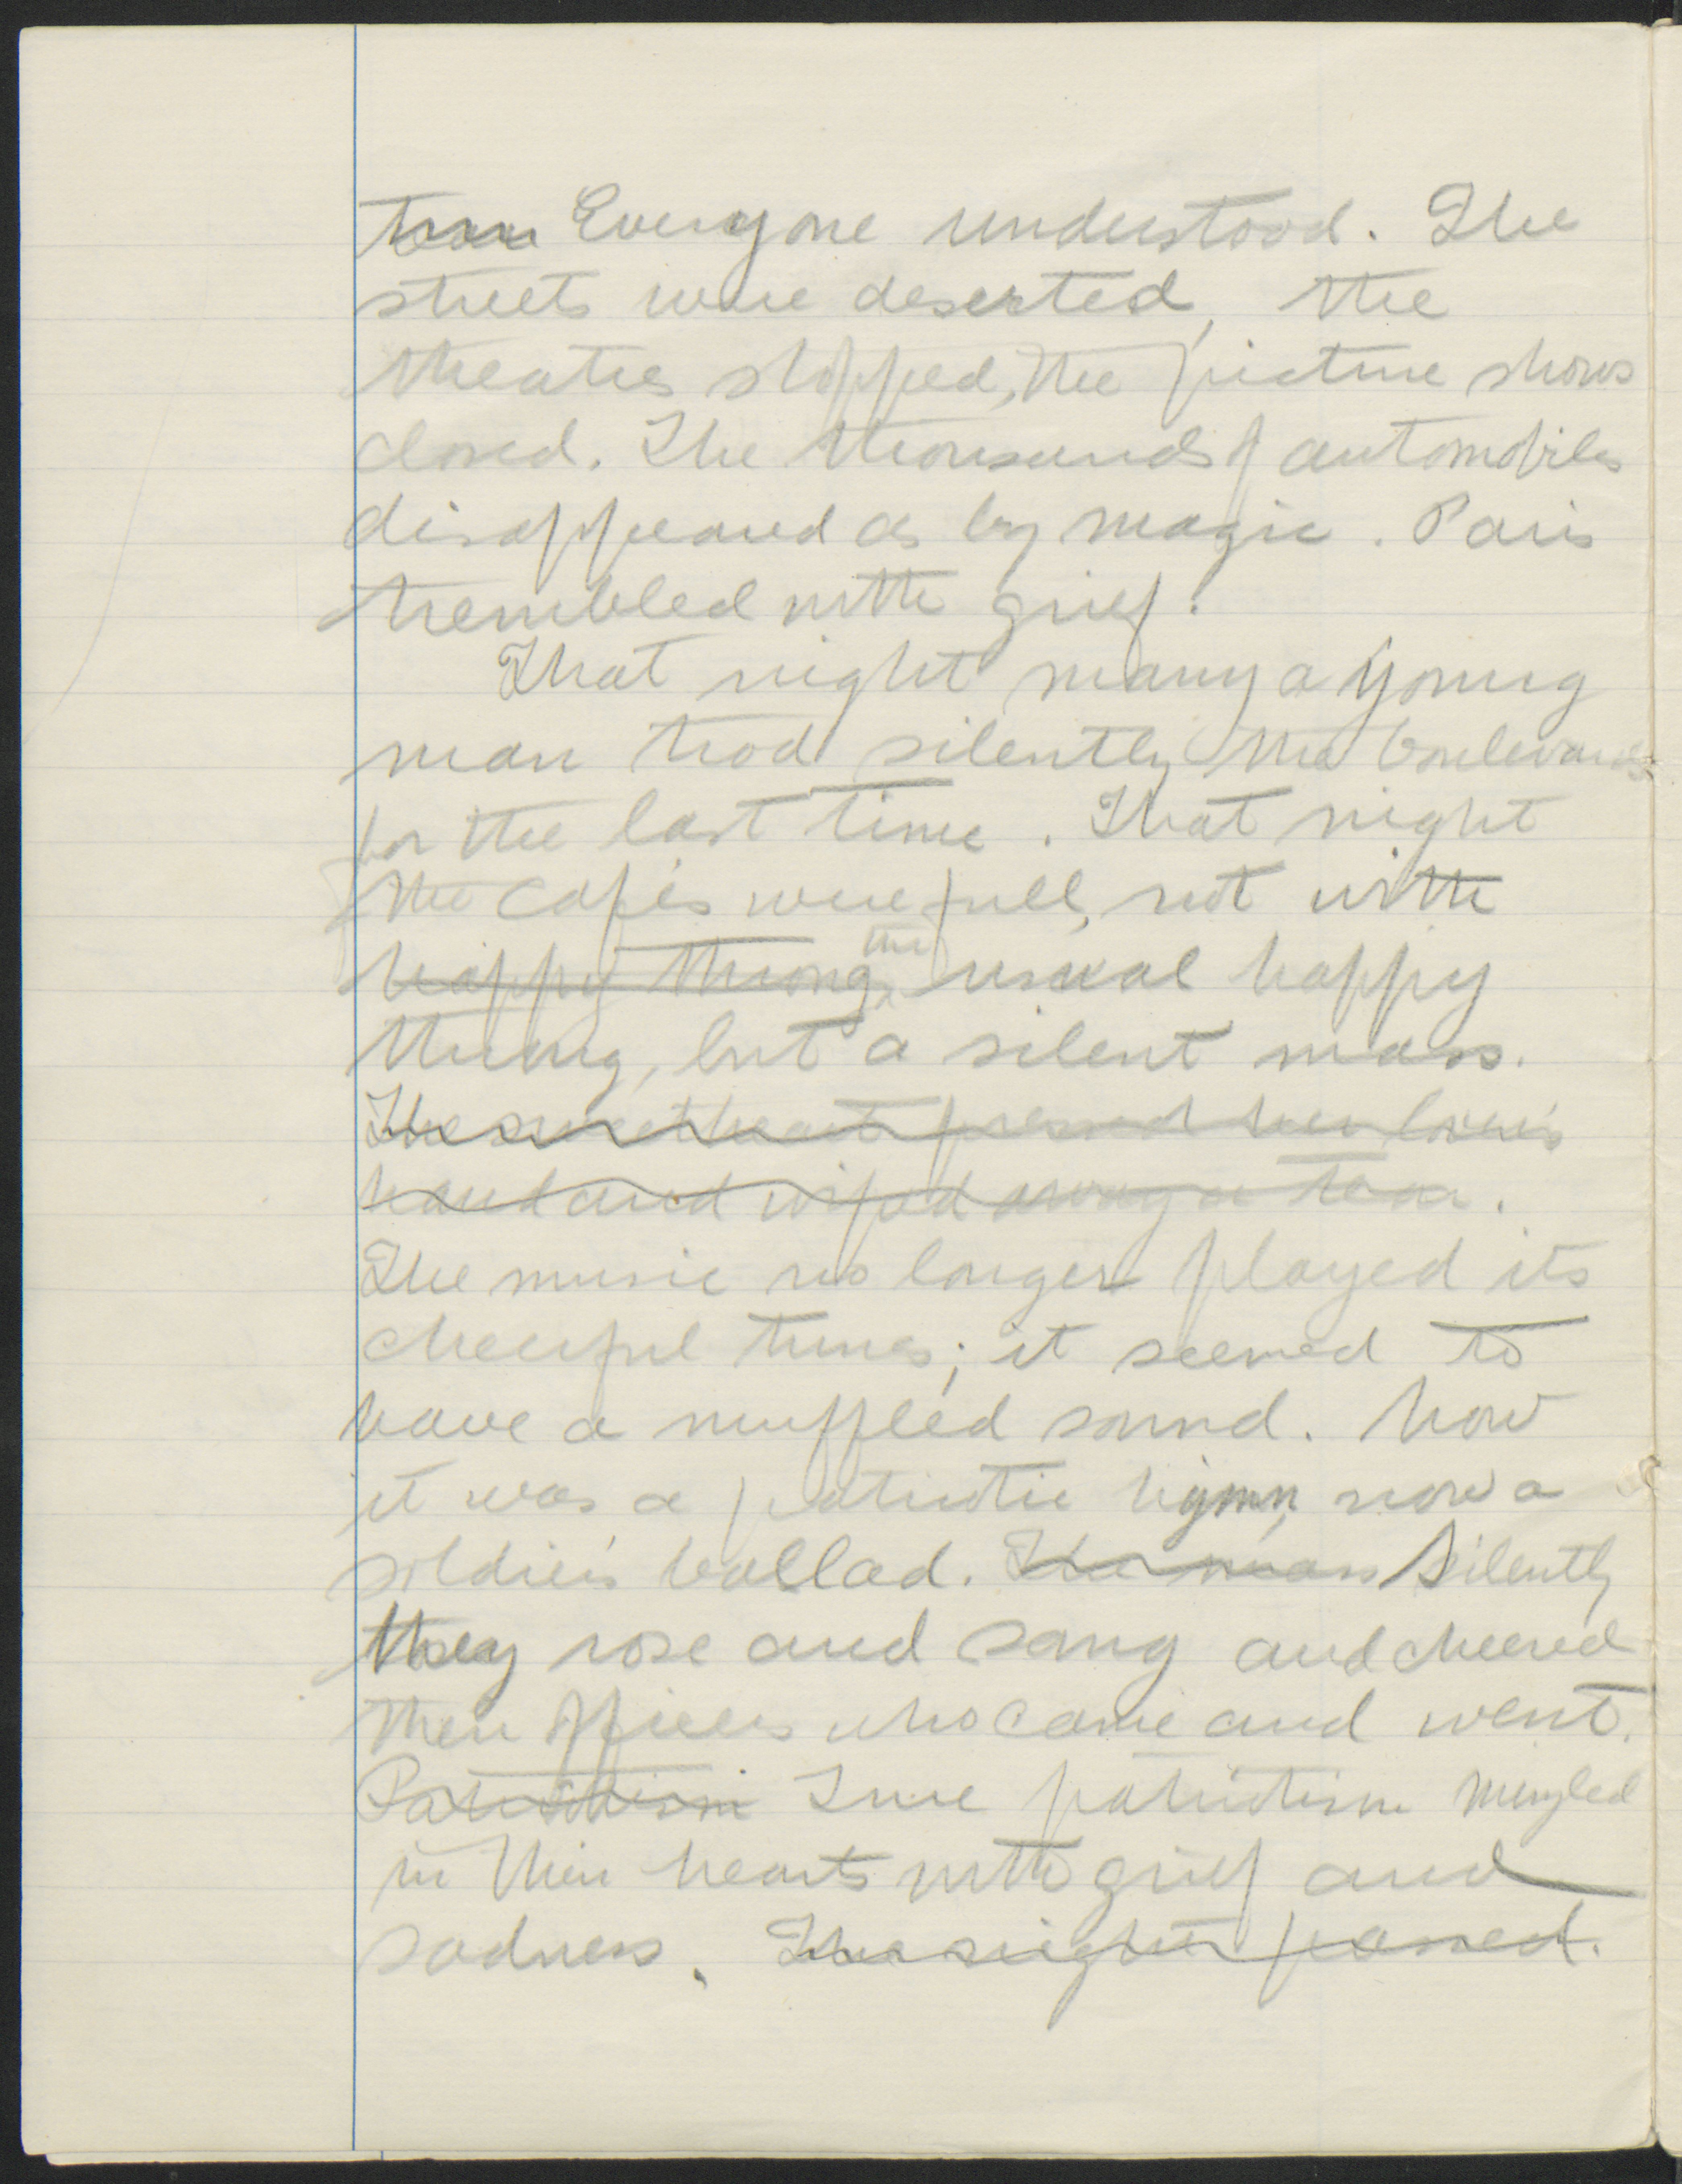 town Everyone understood. The
streets were deserted, the
theatres stopped, the picture shows
closed. The thousands of automobiles
disappeared as by magic. Paris
trembled with grief.
That night many a young
man trod silently the boulevards
for the last time. That night
the cafés were full, not with
happy throng the usual happy
throng, but a silent mass.
The sweetheart pressed her lover's
hand and wiped away a tear.
The music no longer played its
cheerful tunes; it seemed to
have a muffled sound. Now
it was a patriotic hymn, now a
soldier's ballad. The mass Silently
they rose and sang and cheered
their officers who came and went.
Patriotism True patriotism mingled
in their hearts with grief and
sadness. The night passed.